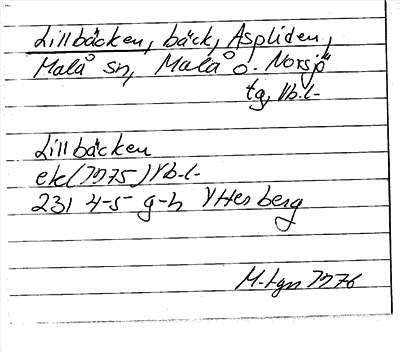 Lillbäcken, bäck, Aspliden,
Malå sn, Malå o. Norsjö
tg, Vb.l.
Lillbäcken
ek (1975) Vb.l.
231 4-5 g-h
M.tgn 1976